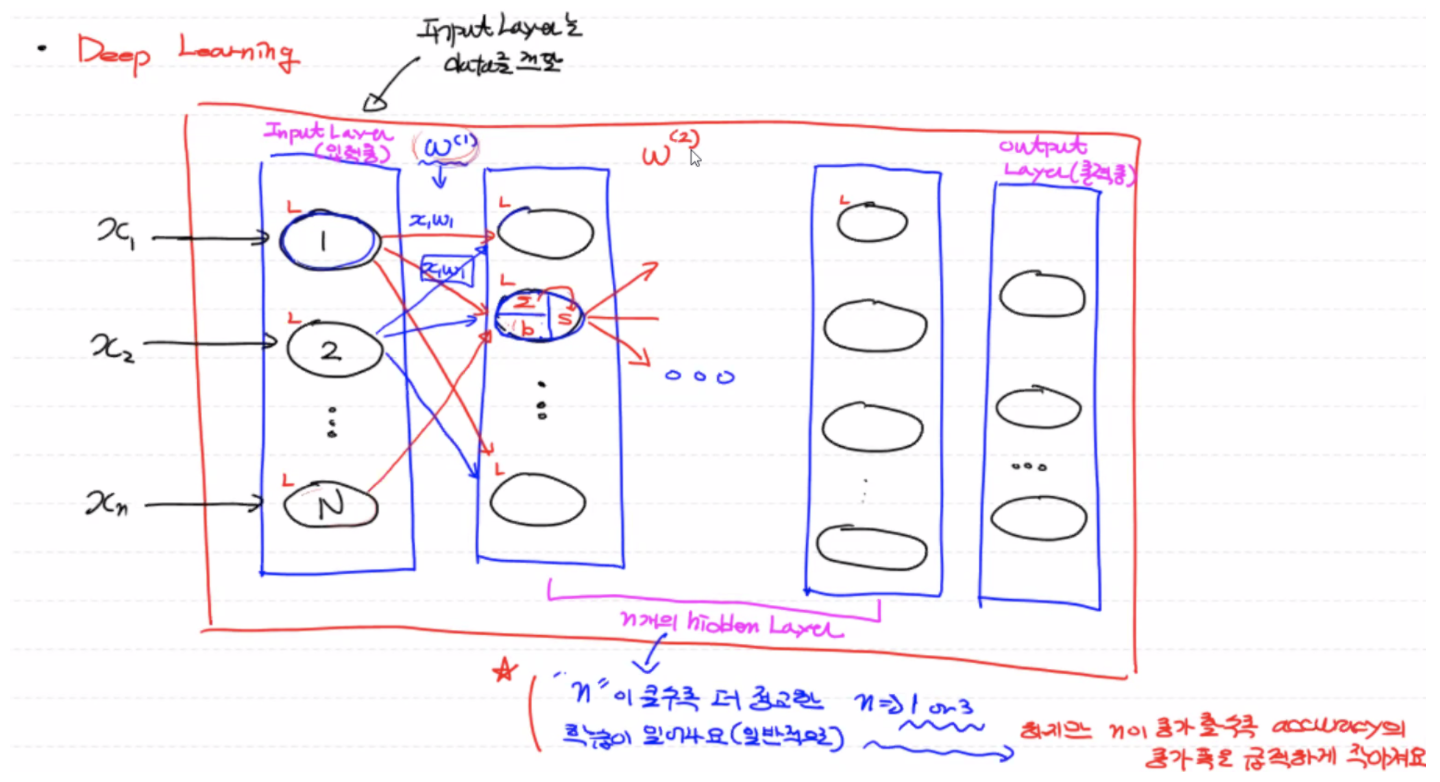 • Deep Learning
Input Layer는
data를 전달
Input Layer
(입력층)
w(1)
w(2)
output
Layer(출력층)
x1
x2
xn
L
1
L
2
L
N
x1w1
x1w1
L
L
Σ
b
S
L
L
n개의 hidden Layer
"n"이 클수록 더 정교한 n⇒1 or 3
학습이 일어나요(일반적으로)
하지만 n이 증가할수록 accuracy의
증가폭은 급격하게 작아져요